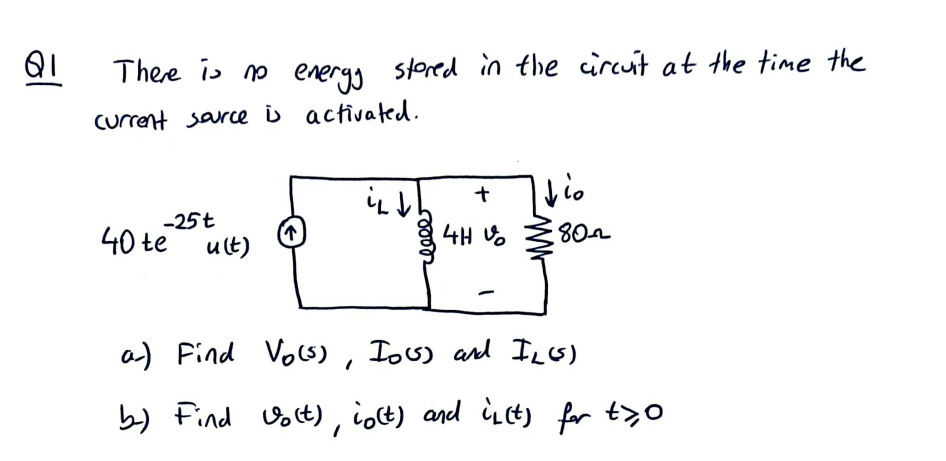 Q1 There is no energy stored in the circuit at the time the
current source is activated.
40 te^-25t u(t)
iL ↓
+
↓ io
4H vo
80Ω
-
a-) Find Vo(s), Io(s) and IL(s)
b-) Find vo(t), io(t) and iL(t) for t≥0